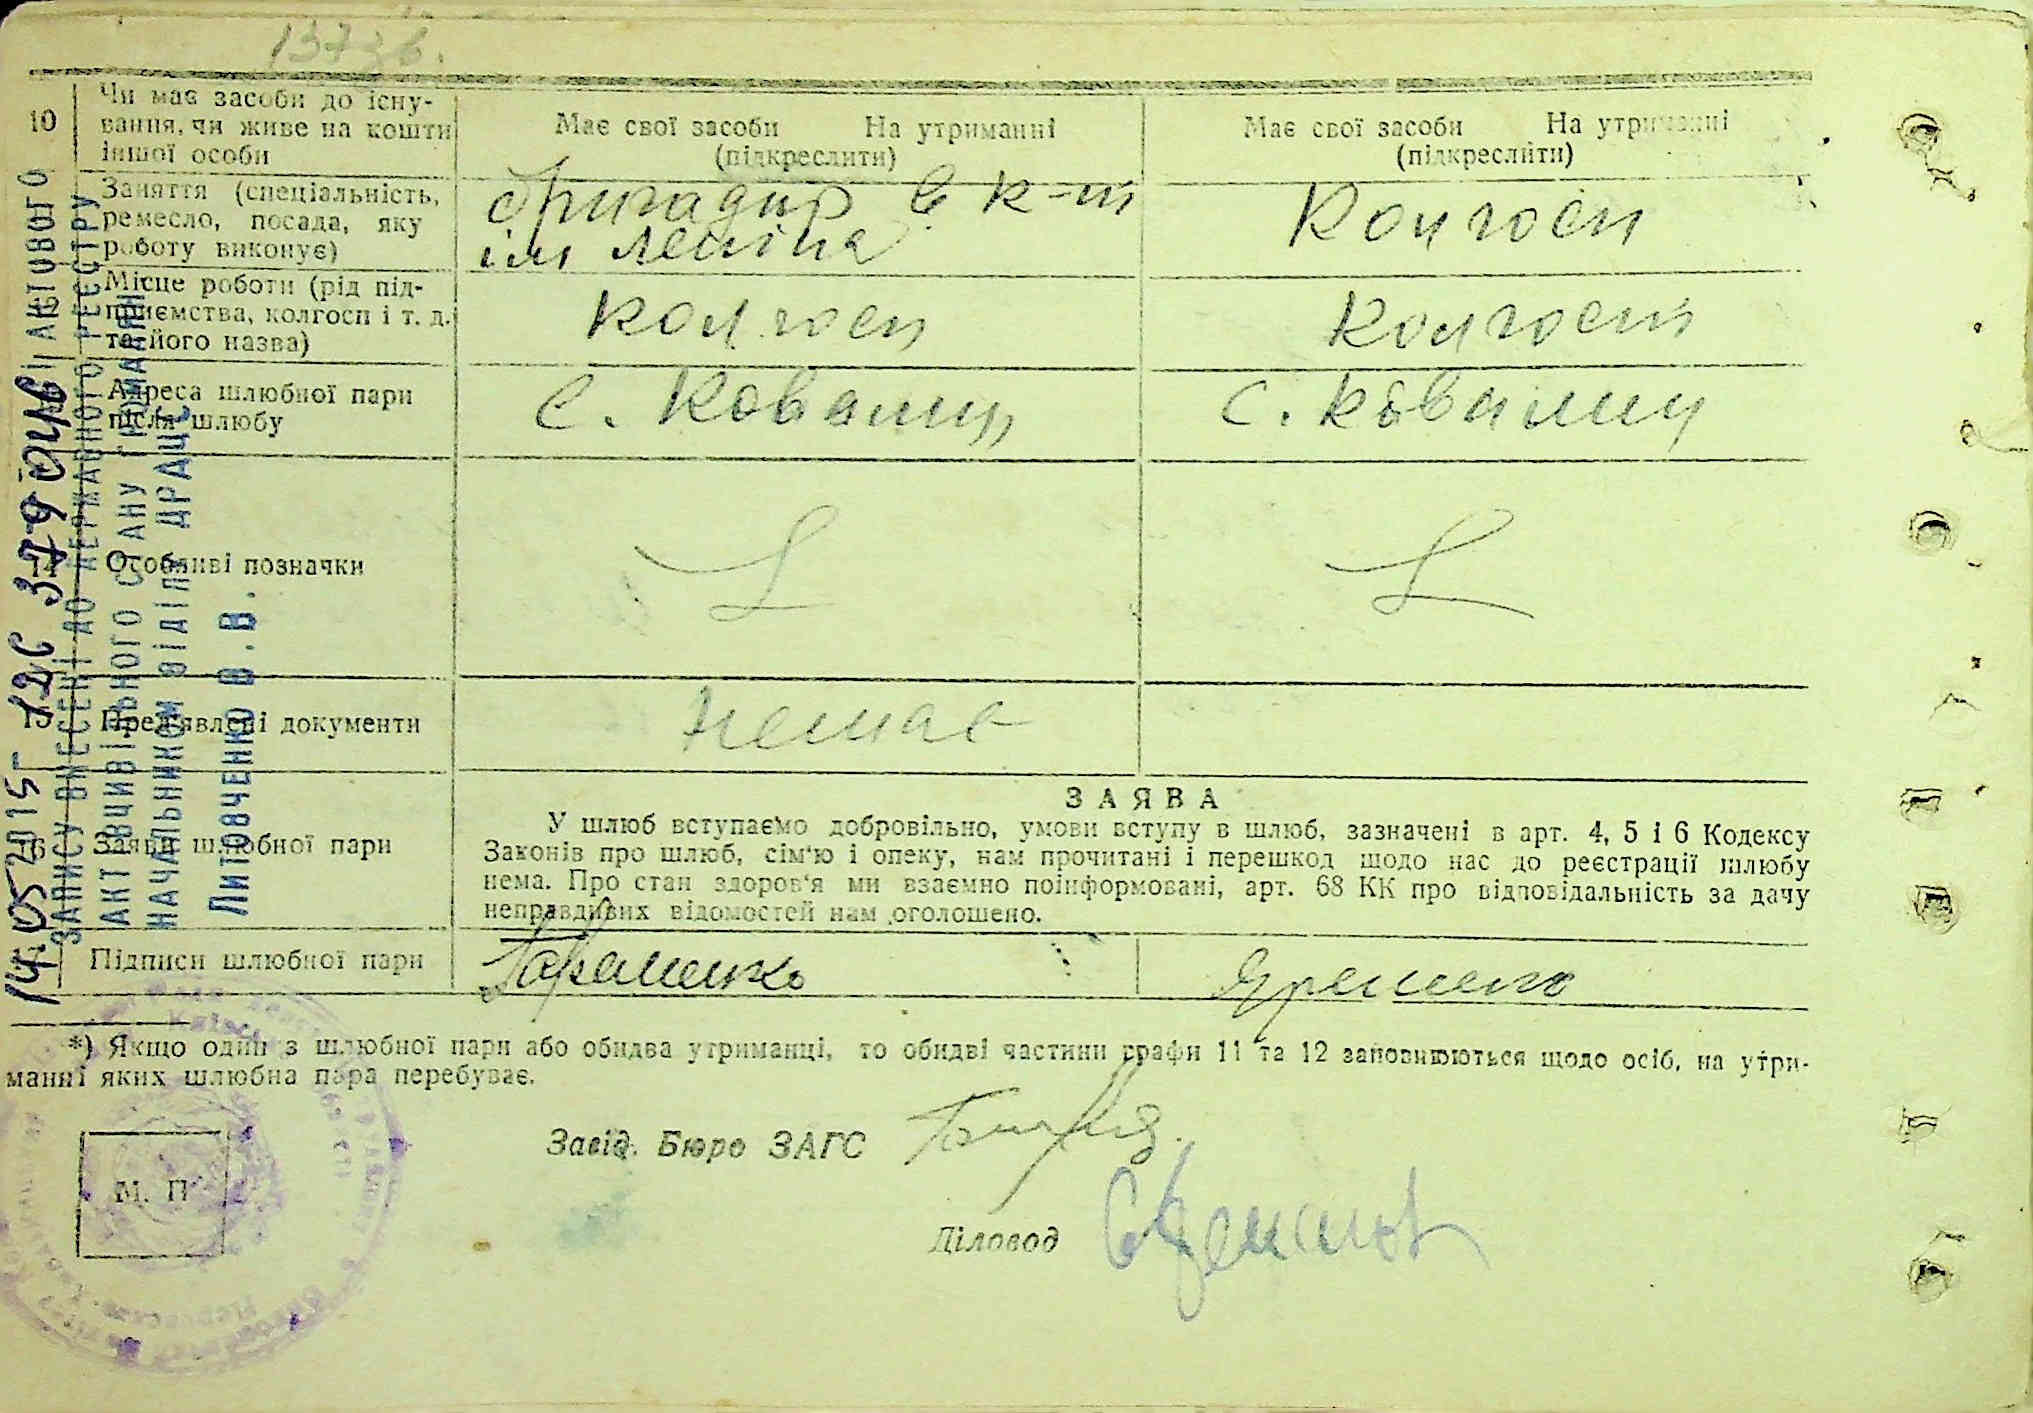 1373б.
10
Чи має засоби до існу-
вання, чи живе на кошти
іншої особи
Має свої засоби На утриманні
(підкреслити)
Має свої засоби На утриманні
(підкреслити)
Заняття (спеціальність,
ремесло, посада, яку
роботу виконує)
бригадир в к-п
ім Леніна
Колгосп
Місце роботи (рід під-
приємства, колгосп і т. д.
та його назва)
колгосп
колгосп
Адреса шлюбної пари
після шлюбу
с. Ковалин
с. Ковалин
Особливі позначки
Пред'явлені документи
немає
Заяви шлюбної пари
ЗАЯВА
У шлюб вступаємо добровільно, умови вступу в шлюб, зазначені в арт. 4, 5 і 6 Кодексу
Законів про шлюб, сім'ю і опеку, нам прочитані і перешкод щодо нас до реєстрації шлюбу
нема. Про стан здоров'я ми взаємно поінформовані, арт. 68 КК про відповідальність за дачу
неправдивих відомостей нам оголошено.
Підписи шлюбної пари
Яременко
*) Якщо один з шлюбної пари або обидва утриманці, то обидві частини графи 11 та 12 заповнюються щодо осіб, на утри-
манні яких шлюбна пара перебуває.
Завід. Бюро ЗАГС
М. П
Діловод
14.05 2015
ЗАПИСУ ВНЕСЕНІ ДО ДЕРЖАВНОГО РЕЄСТРУ
АКТІВ ЦИВІЛЬНОГО СТАНУ ГРОМАДЯН
НАЧАЛЬНИКОМ ВІДДІЛУ ДРАЦС
Литовченко В.В.